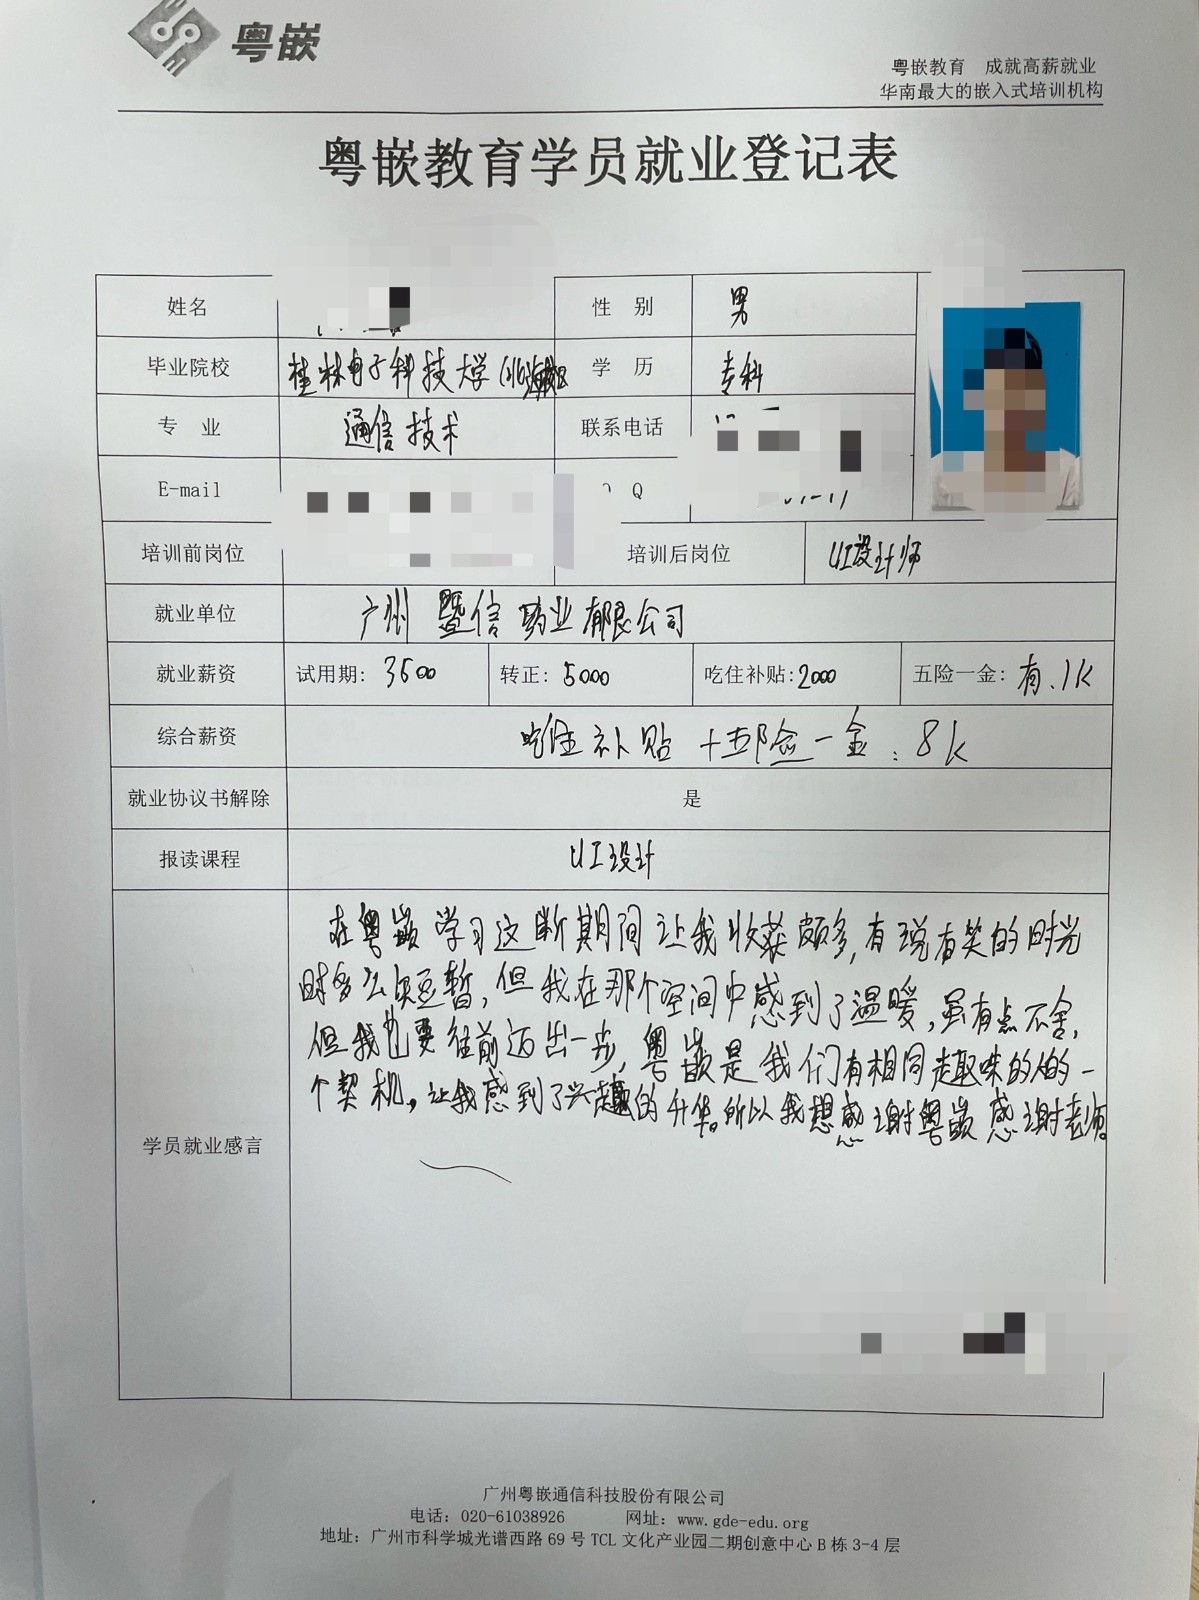 粤嵌
粤嵌教育 成就高薪就业
华南最大的嵌入式培训机构
粤嵌教育学员就业登记表
姓名 性 别 男
毕业院校 桂林电子科技大学(北海校区 学 历 专科
专 业 通信技术 联系电话
E-mail Q
培训前岗位 培训后岗位 UI设计师
就业单位 广州暨信药业有限公司
就业薪资 试用期: 3500 转正: 5000 吃住补贴:2000 五险一金: 有、1K
综合薪资 吃住补贴+五险一金:8k
就业协议书解除 是
报读课程 UI设计
学员就业感言
在粤嵌学习这断期间让我收获颇多,有说有笑的时光
时多么短暂,但我在那个空间中感到了温暖,虽有点不舍,
但我也要往前迈出一步,粤嵌是我们有相同趣味的人的一
个契机,让我感到了兴趣的升华。所以我想感谢粤嵌感谢老师。
广州粤嵌通信科技股份有限公司
电话: 020-61038926 网址: www.gde-edu.org
地址: 广州市科学城光谱西路 69 号 TCL 文化产业园二期创意中心 B 栋 3-4 层